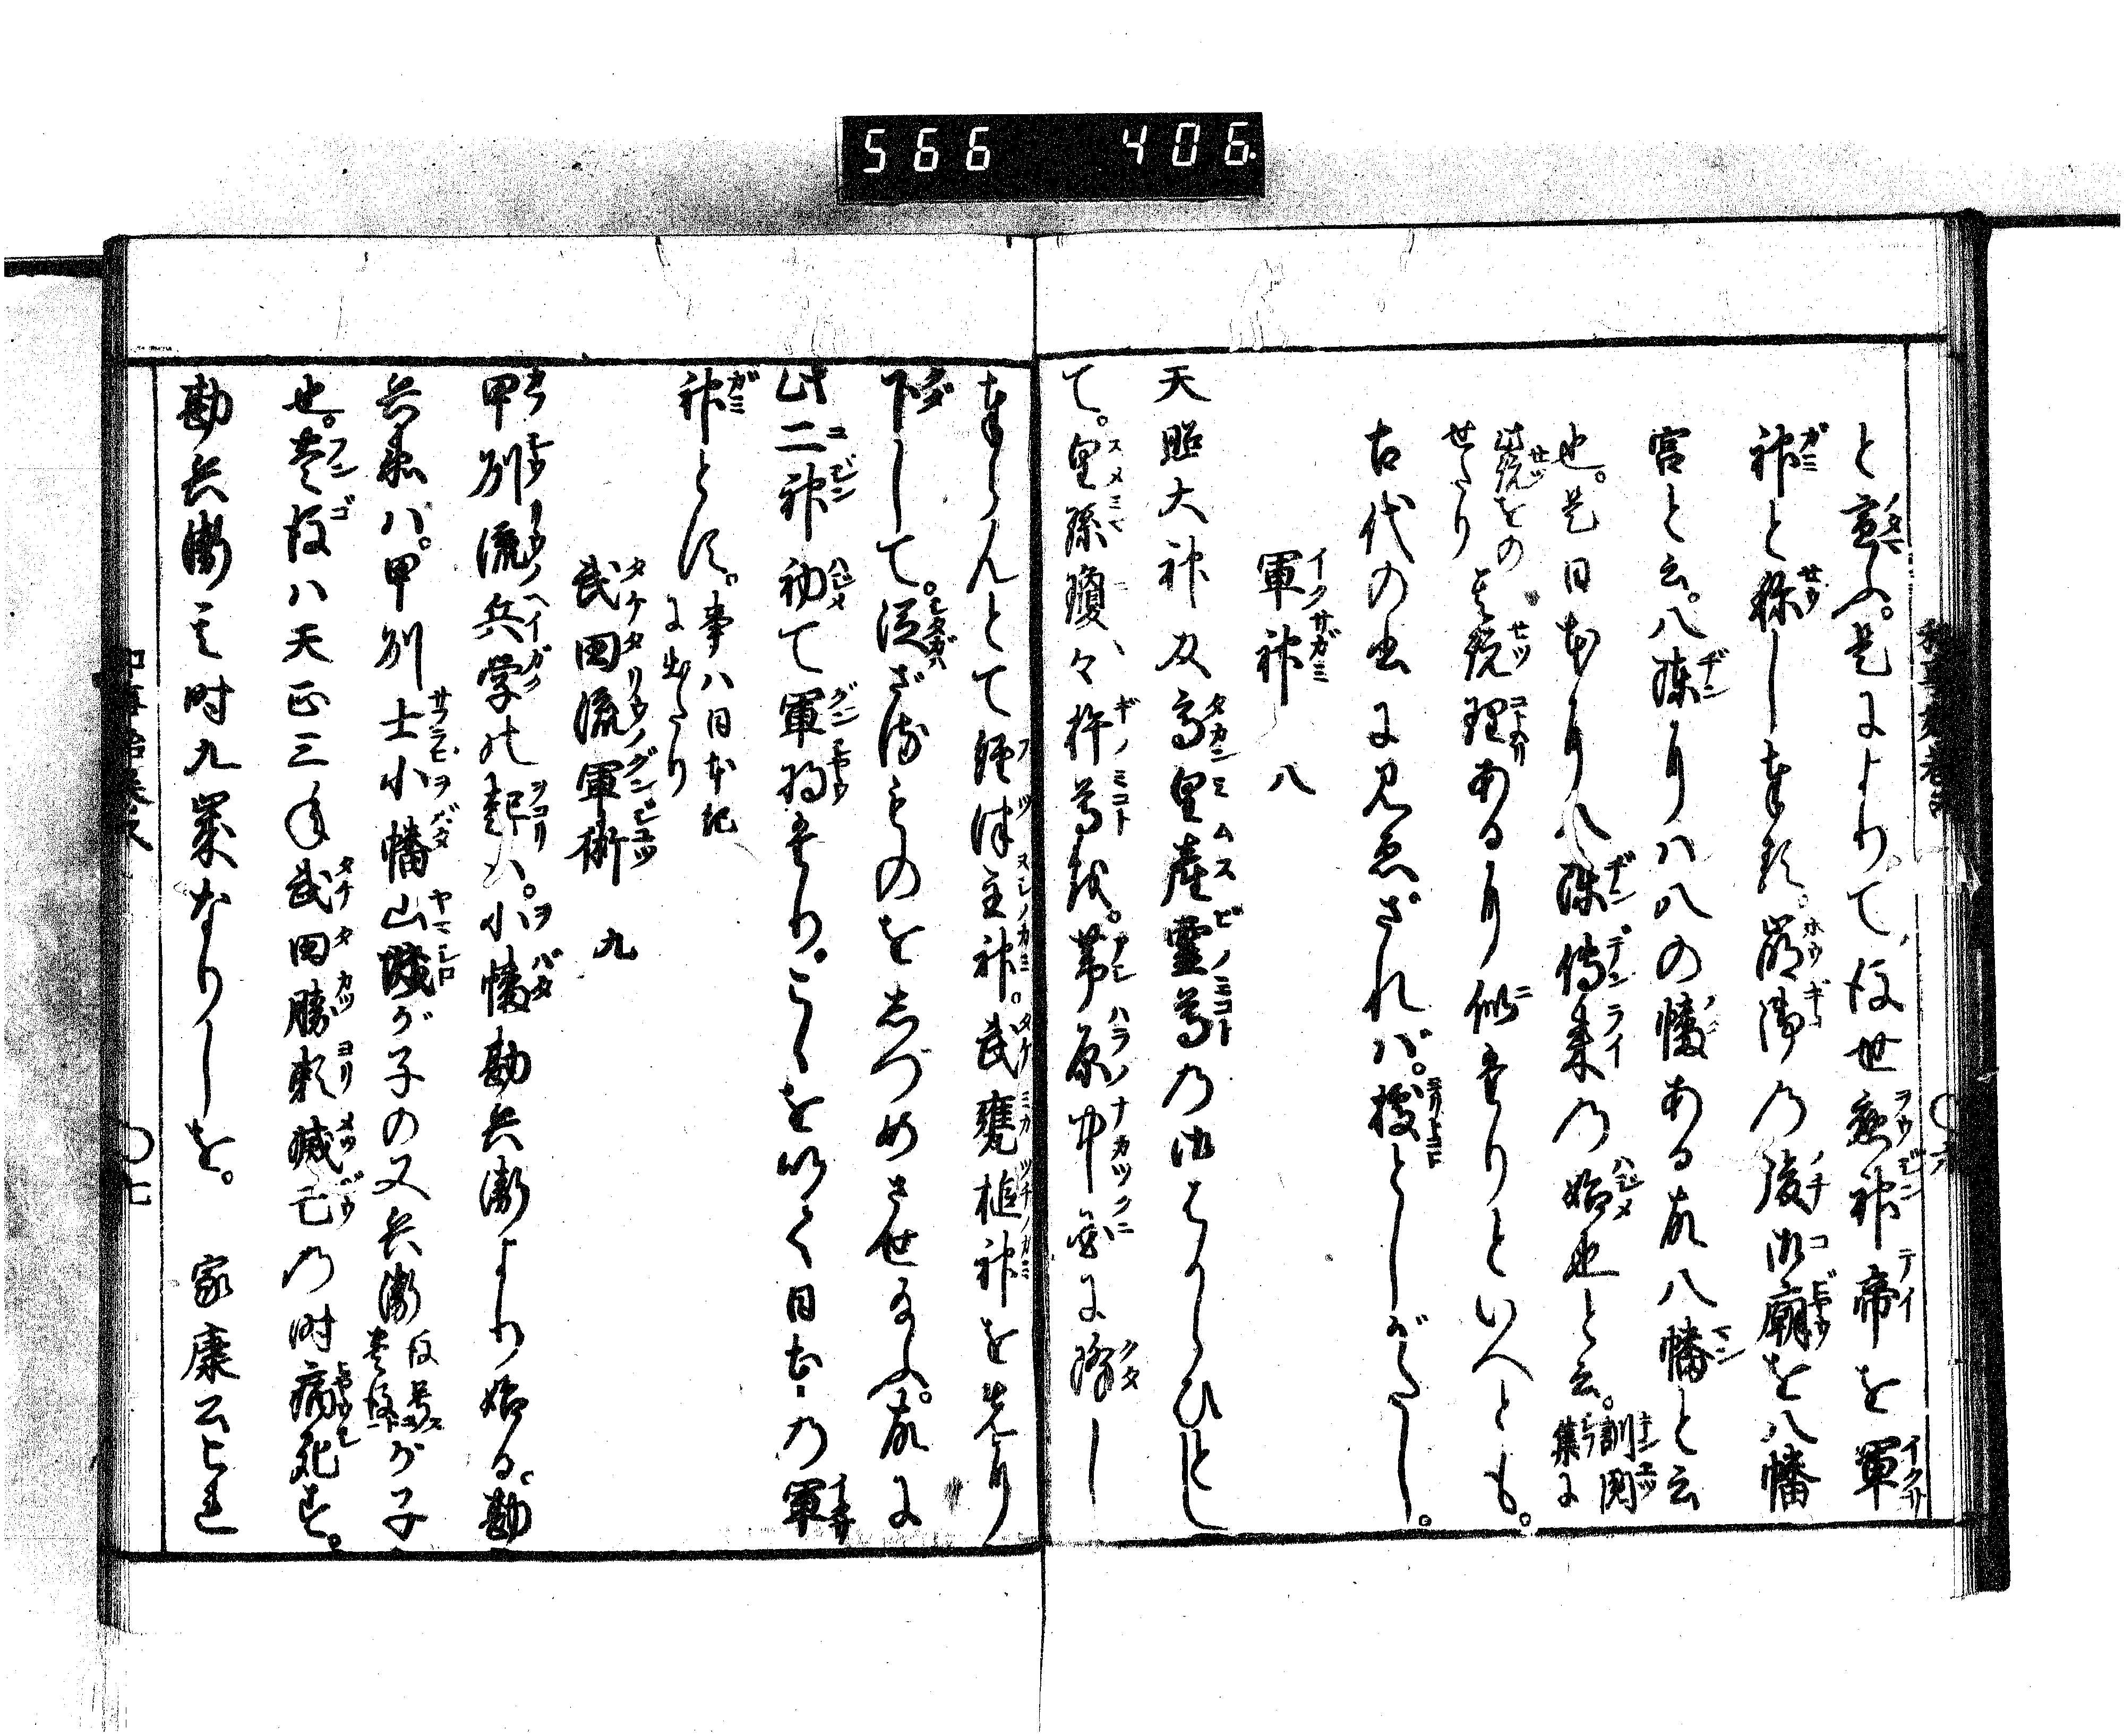 566 406
と宣ふ。是によりて、後世應神帝を軍
神と称し奉る。崩御の後御廟を八幡
宮と云。八陣より八の幡ある故八幡と云
也。是日本より八陣傳来の始也と云。訓閲集に
此説をのせたり 其説理あるに似たりといへとも。
古代の書に見えざれバ。據としがたし。
軍神 八
天照大神及高皇産霊尊の御はからひとし
て。皇孫瓊々杵尊を。葦原中国に降し
奉らんとて経津主神。武甕槌神を先に
下して。従ざるものをしづめさせ給ふ。故に
此二神初て軍将たり。こゝを以て日本の軍
神とす。事ハ日本紀に出たり
武田流軍術 九
甲州流兵学の起ハ。小幡勘兵衛より始る。勘
兵衛ハ。甲州士小幡山城が子の又兵衛後号豊後が子
也。豊後ハ天正三年武田勝頼滅亡の時病死す。
勘兵衛其時九歳なりしを。 家康公